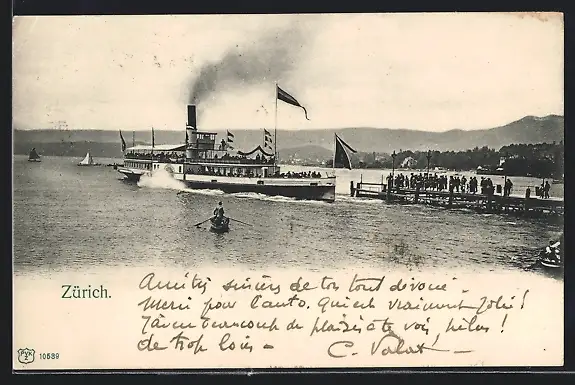 Zürich.
Amitiés sincères de ton tout dévoué -
Merci pour l'auto. Qu'il est vraiment joli!
J'ai eu beaucoup de plaisir à te voir, hélas!
de trop loin - C. Valat -
PVK Z 10589